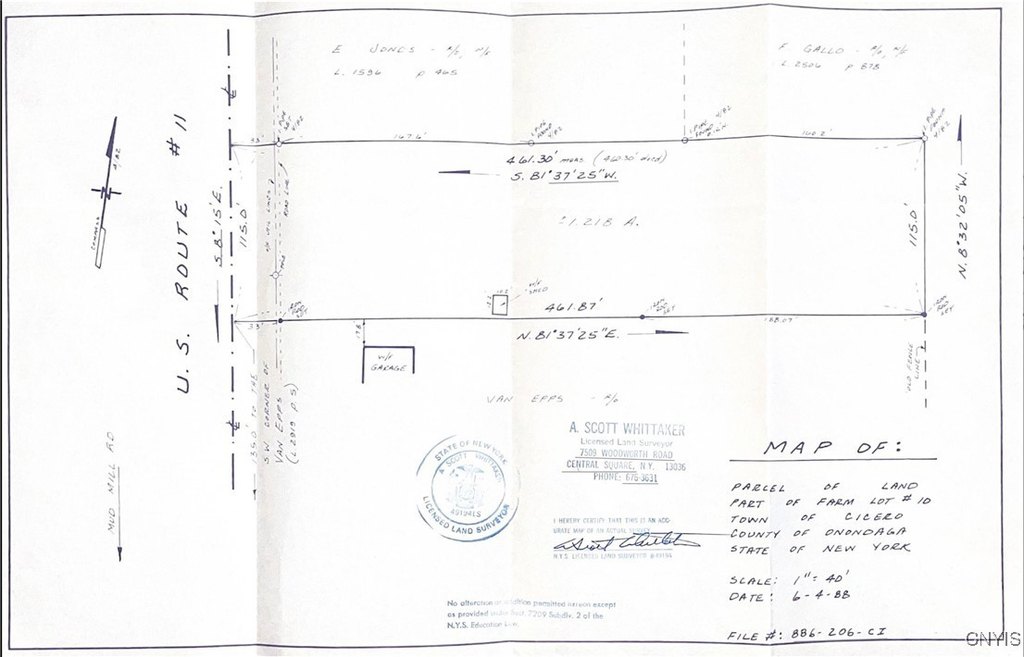 E JONES - R/O, N/F
L. 1596 P 465
F GALLO - R/O, N/F
L 2506 P 878
U.S. ROUTE #11
33'
167.6'
160.2'
461.30' MEAS (460.50' deed)
S. 81°37'25" W.
±1.218 A.
S 8°15' E.
115.0'
115.0'
N. 8°32'05" W.
4/82
COMPASS
33'
W/F SHED
461.87'
188.07'
N. 81°37'25" E.
17.8
W/F GARAGE
OLD FENCE LINE
VAN EPPS - R/O
1350' TO THE
S.W. CORNER OF
VAN EPPS
(L 2919 P. 5)
MUD MILL RD
STATE OF NEW YORK
A. SCOTT WHITTAKER
49194LS
LICENSED LAND SURVEYOR
A. SCOTT WHITTAKER
Licensed Land Surveyor
7509 WOODWORTH ROAD
CENTRAL SQUARE, N.Y. 13036
PHONE: 676-3631
I HEREBY CERTIFY THAT THIS IS AN ACC-
URATE MAP OF AN ACTUAL SURVEY
N.Y.S. LICENSED LAND SURVEYOR # 49194
No alteration or addition permitted hereon except
as provided under Sect. 7209 Subdiv. 2 of the
N.Y.S. Education Law.
MAP OF:
PARCEL OF LAND
PART OF FARM LOT #10
TOWN OF CICERO
COUNTY OF ONONDAGA
STATE OF NEW YORK
SCALE: 1"=40'
DATE: 6-4-88
FILE #: 886-206-CI
CNYIS